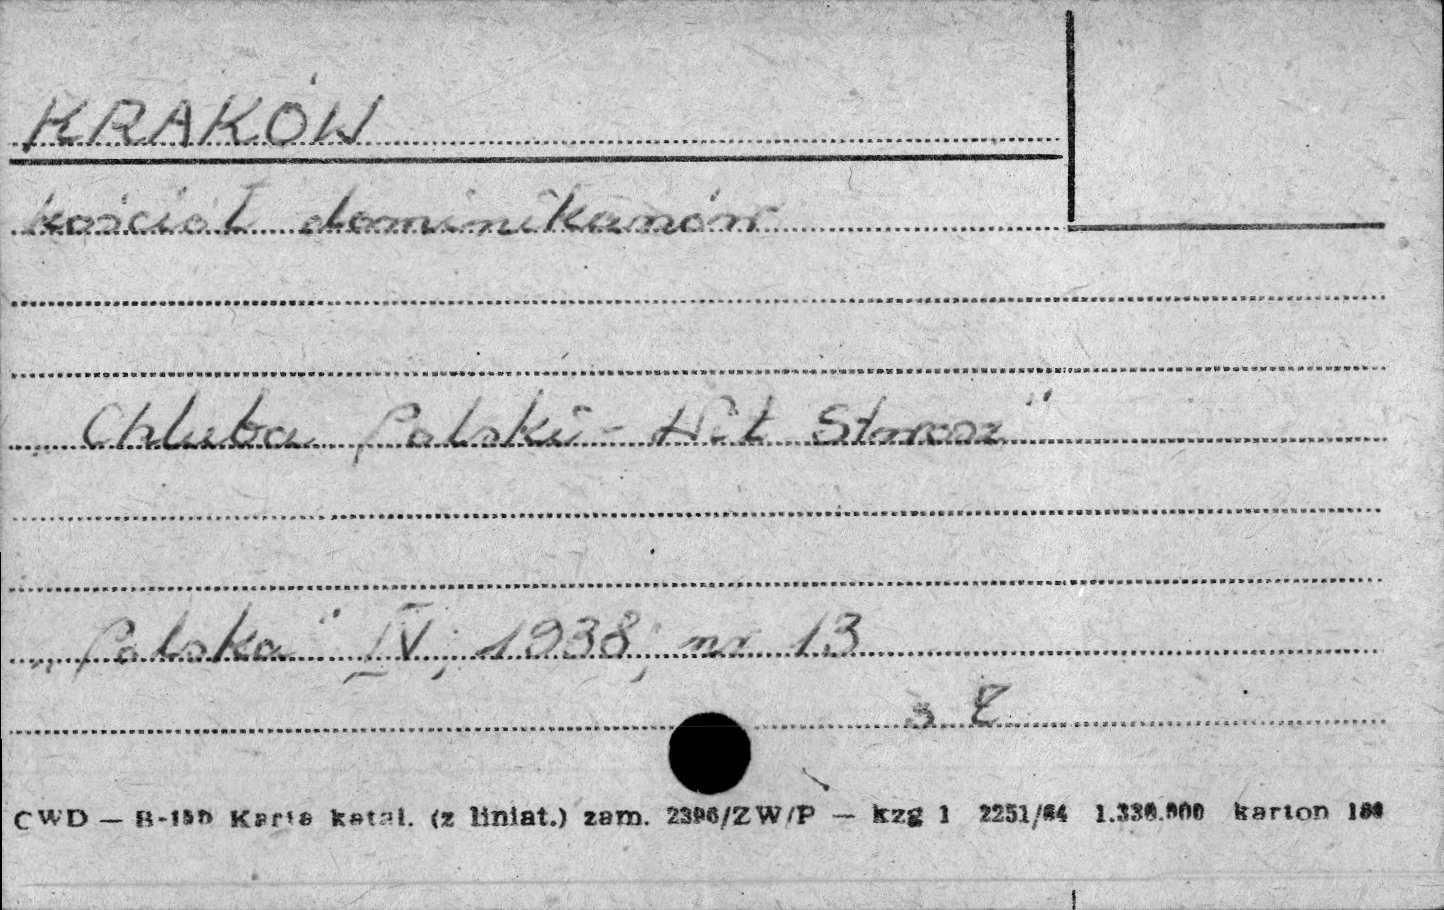 KRAKÓW
kościół dominikanów
„Chluba Polski - Wit Stwosz"
„Polska" IV, 1938, nr 13
s 7
CWD — B-155 Karta katal. (z liniat.) zam. 2396/ZW/P — kzg 1 2251/64 1.330.000 karton